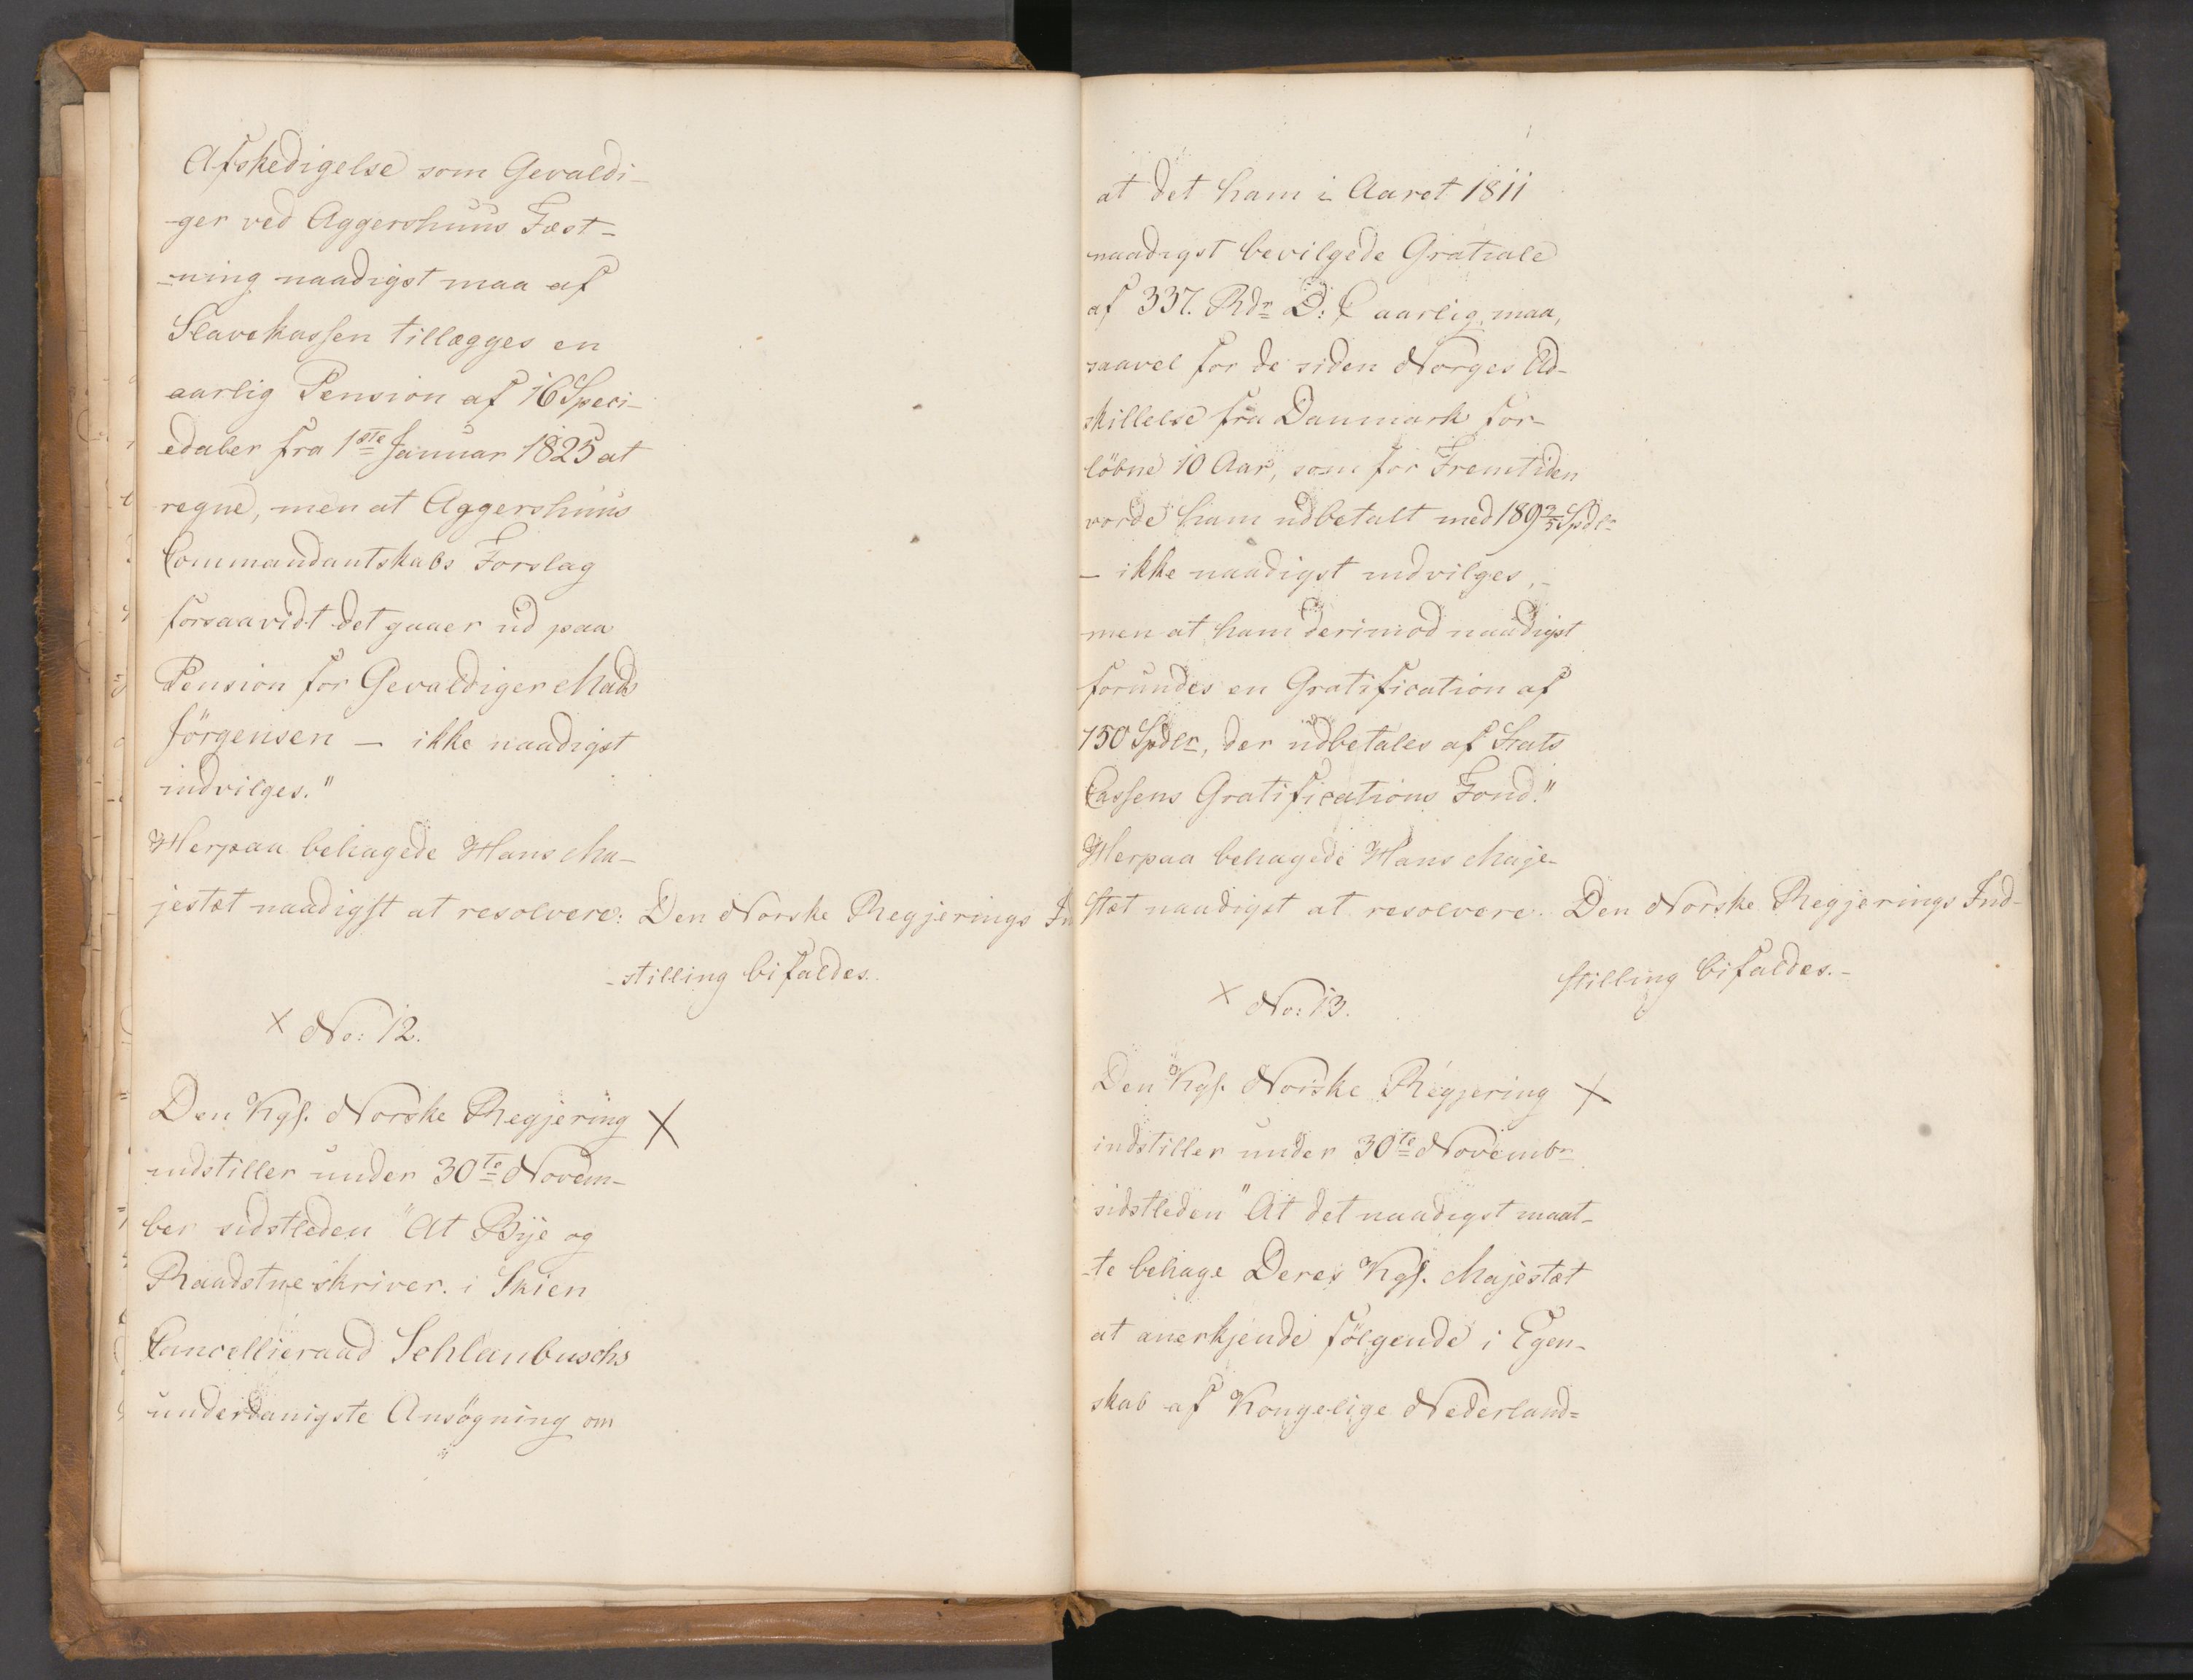 Afskedigelse som Gevaldi-
-ger ved Aggershuus Fæst-
-ning naadigst maa af
Slavekassen tillægges en
aarlig Pension af 16 Speci-
edaler fra 1ste Januar 1825 at
regne, men at Aggershuus
Commandantskabs Forslag
forsaavidt det gaaer ud paa
Pension for Gevaldiger Mads
Jörgensen - ikke naadigst
indvilges."
Herpaa behagede Hans Ma-
jestæt naadigst at resolvere: Den Norske Regjerings In
-stilling bifaldes.
x No: 12.
Den Kgl. Norske Regjering x
indstiller under 30te Novem-
ber sidstleden "At Bye og
Raadstueskriver i Skien
Cancellieraad Schlanbuschs
underdanigste Ansögning om
at det ham i Aaret 1811
naadigst bevilgede Gratiale
af 337. Rdr D: C aarlig, maa,
saavel for de siden Norges Ad-
skillelse fra Danmark for-
löbne 10 Aar, som for Fremtiden
vorde ham udbetalt med 189 3/5 Spdlr
- ikke naadigst indvilges, -
men at ham derimod naadigst
forundes en Gratification af
150 Spdlr, der udbetales af Stats
Cassens Gratifications Fond."
Herpaa behagede Hans Maje-
stæt naadigst at resolvere. Den Norske Regjerings Ind-
stilling bifaldes. -
x No: 13.
Den Kgl. Norske Regjering x
indstiller under 30te Novembr
sidstleden "At det naadigst maat-
-te behage Deres Kgl. Majestæt
at anerkjende fölgende i Egen-
skab af Kongelige Nederland=